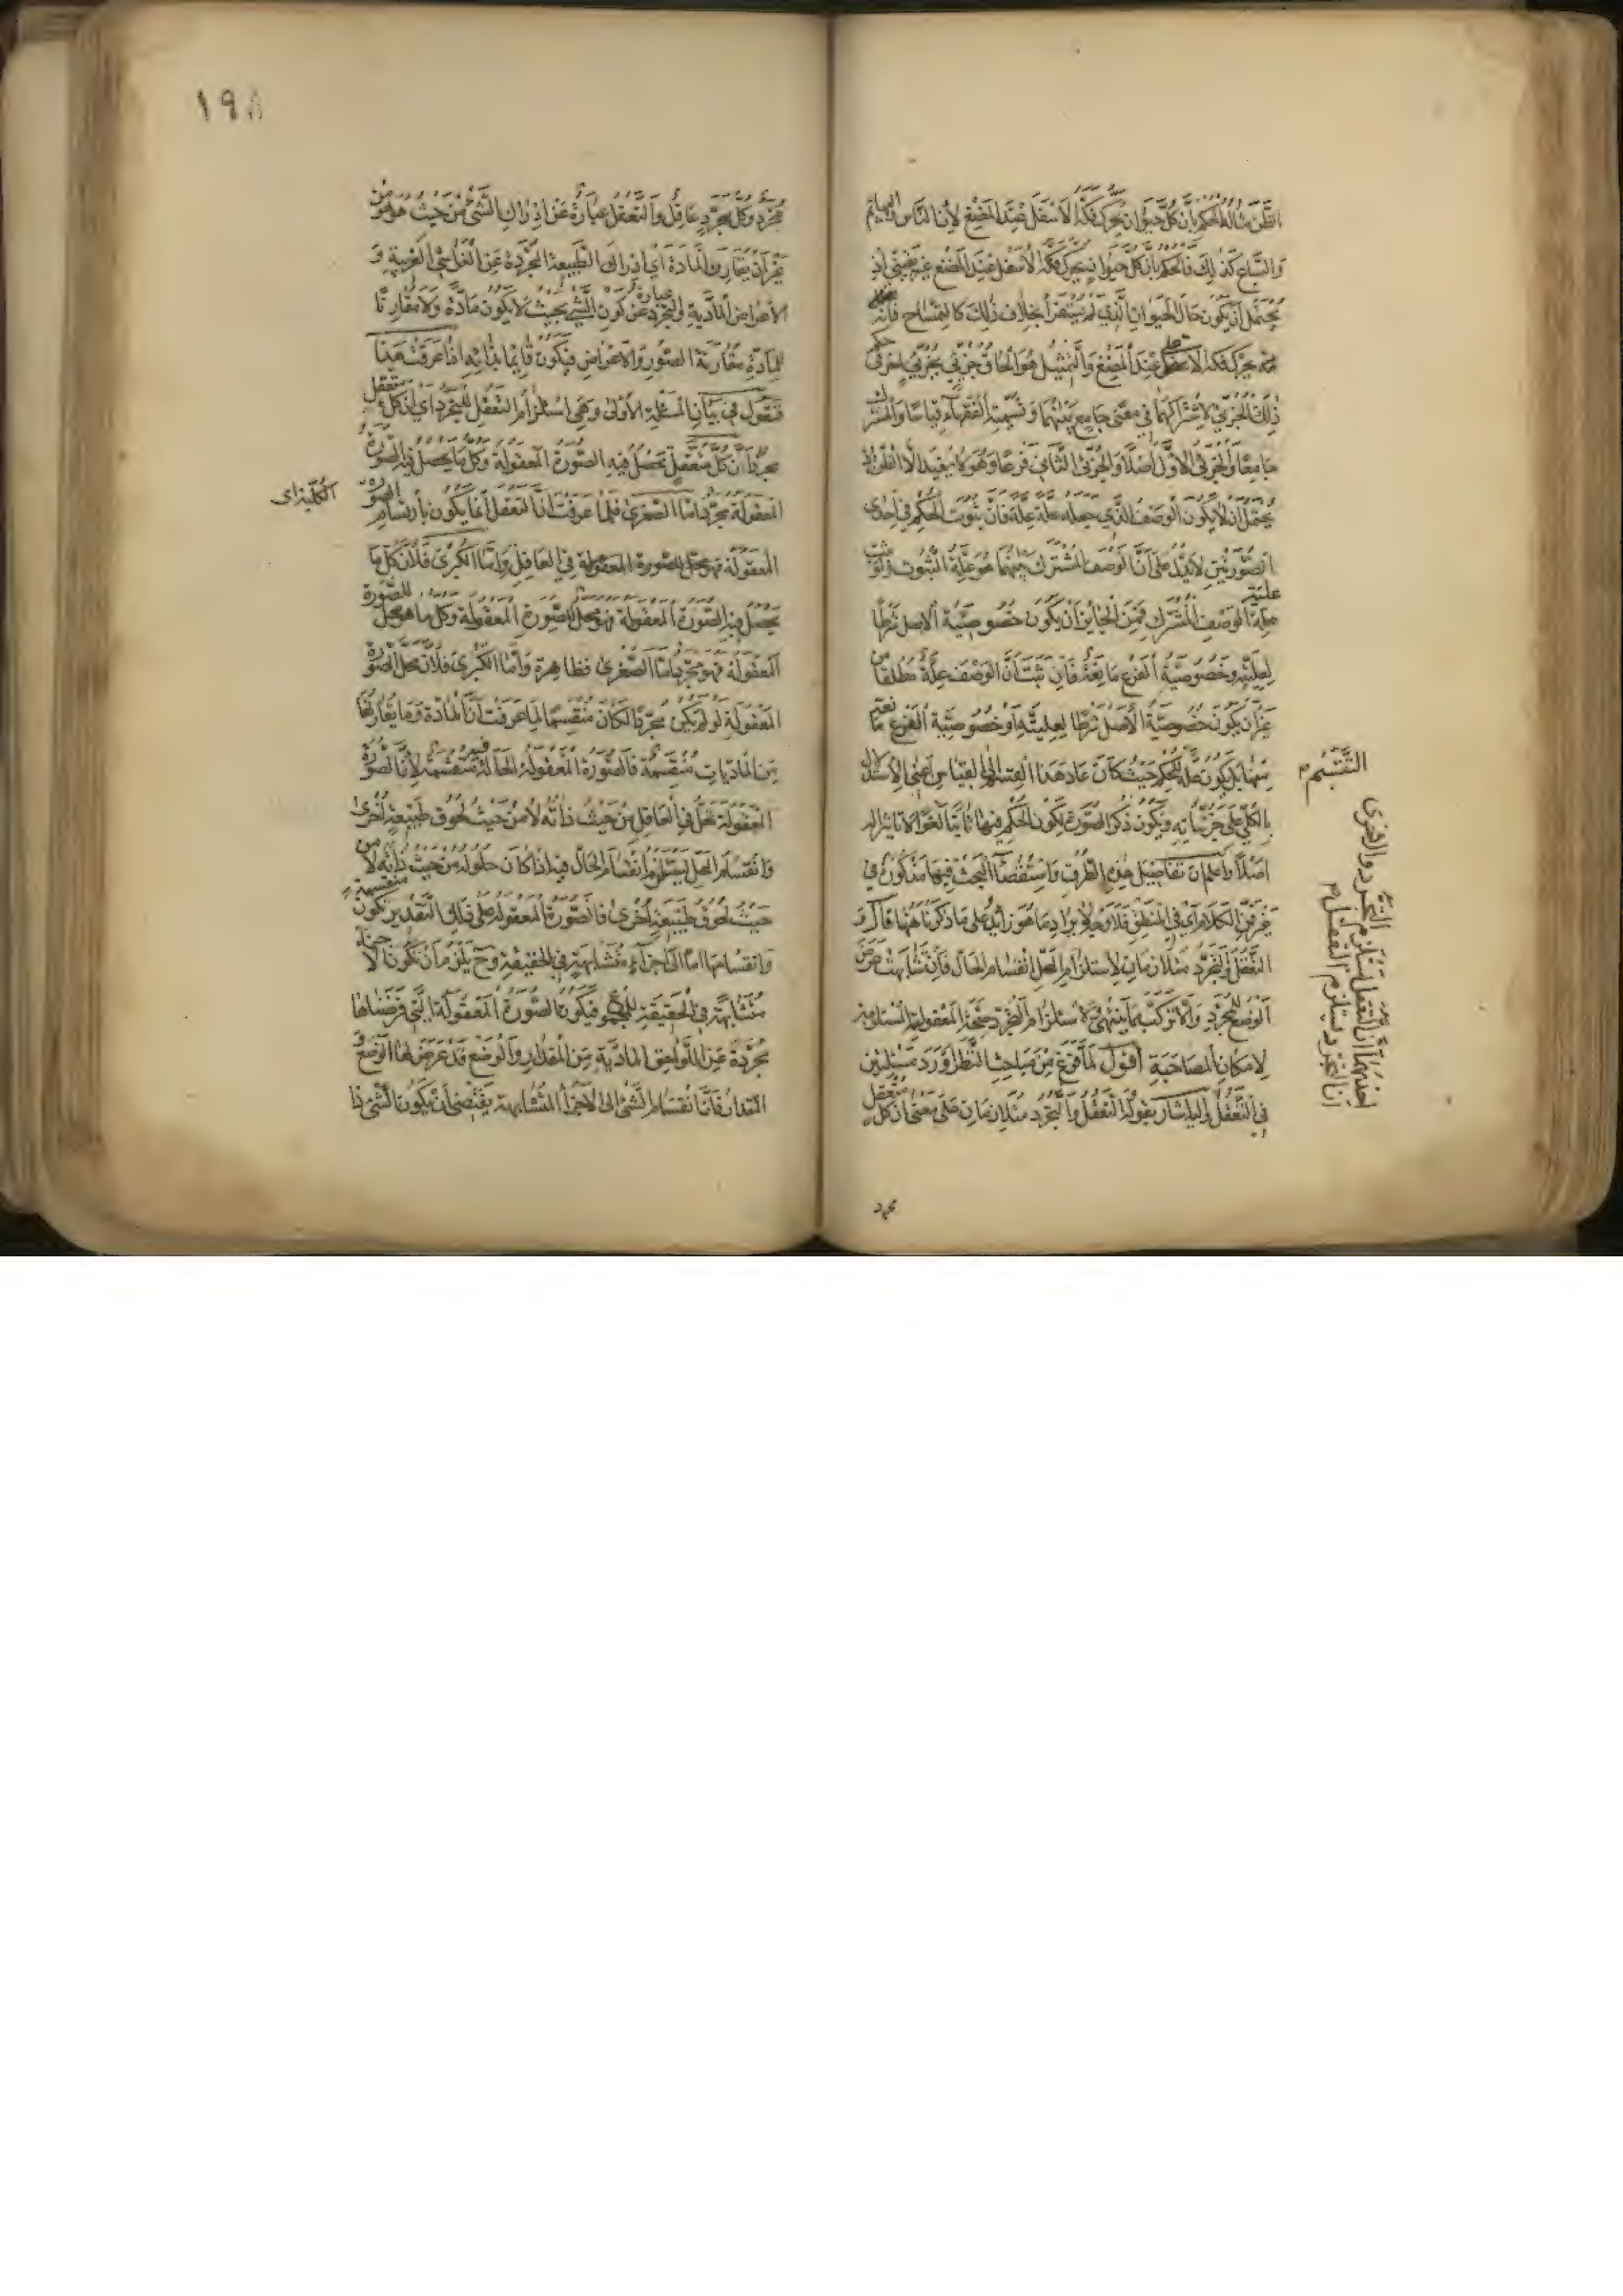 الظن مثاله الحكم بأن كل حيوان يحرك فكه الأسفل عند المضغ لأن الناس والبهائم
والسباع كذلك فالحكم بأن كل حيوان يحرك فكه الأسفل عند المضغ غير يقيني إذ
يحتمل أن يكون حال الحيوان الذي لم يستقرأ بخلاف ذلك كالتمساح فإنه
يحرك فكه الأعلى عند المضغ والتمثيل هو إلحاق جزئي بجزئي آخر في حكم
ذلك الجزئي لاشتراكهما في معنى جامع بينهما وتسميه الفقهاء قياسا والمشترك
جامعا والجزئي الأول أصلا والجزئي الثاني فرعا وهو لا يفيد إلا الظن إذ
يحتمل أن لا يكون الوصف الذي جعله علة علة فإن ثبوت الحكم في إحدى
الصورتين لا يدل على أن الوصف المشترك بينهما هو علة الثبوت ولو ثبت
علية الوصف المشترك فمن الجائز أن يكون خصوصية الأصل شرطا
لعليته وخصوصية الفرع مانعة فإن ثبت أن الوصف علة مطلقا من
غير أن يكون خصوصية الأصل شرطا لعليته أو خصوصية الفرع مانعة
منها بل يكون علة للحكم حيث كان عاد هذا القسم إلى القياس أعني الاستدلال
بالكلي على جزئياته ويكون ذكر الصورة لكون الحكم فيها ثابتا لغوا لا تأثير له
أصلا واعلم أن تفاصيل هذه الطرق واستقصاء البحث فيها مذكورة في
غير هذا الكلام أي في المنطق فلا وجه لإيراد ما هو زائد على ما ذكرنا ههنا قال و
التعقل والتجرد متلازمان لاستلزام المحل انقسام الحال فإن تشابهت عرض
الوضع للمجرد وإلا تركب مما لا يتناهى ولاستلزام التجرد صحة المعقولية المستلزمة
لإمكان المصاحبة أقول لما فرغ من مباحث النظر أورد مسئلتين
في التعقل وإليه أشار بقوله التعقل والتجرد متلازمان على معنى أن كل متعقل
التقسيم م
إحديهما أن التعقل يستلزم التجرد والأخرى
أن التجرد يستلزم التعقل م
مجرد
١٩٨
مجرد وكل مجرد عاقل والتعقل عبارة عن إدراك الشيء من حيث هو هو من
غير أن يقارن المادة أي إدراك الطبيعة المجردة عن الغواشي الغريبة و
الأعراض المادية والتجرد عبارة عن كون الشيء بحيث لا يكون مادة ولا مقارنا
للمادة مقارنة الصور والأعراض فيكون قائما بذاته إذا عرفت هذا
فنقول في بيان المسئلة الأولى وهي استلزام التعقل للتجرد أي أن كل متعقل
مجرد أن كل متعقل تحصل فيه الصورة المعقولة وكل ما يحصل فيه الصورة
المعقولة مجرد أما الصغرى فلما عرفت أن التعقل إنما يكون بارتسام الصورة
المعقولة فهو محل للصورة المعقولة في العاقل وأما الكبرى فلأن كل ما
يحصل فيه الصورة المعقولة فهو محل للصورة المعقولة وكل ما هو محل للصورة
المعقولة فهو مجرد أما الصغرى فظاهرة وأما الكبرى فلأن محل الصورة
المعقولة لو لم يكن مجردا لكان منقسما لما عرفت أن المادة وما يقارنها
من الماديات منقسمة فالصورة المعقولة الحالة فيه منقسمة لأن الصورة
المعقولة تحل في العاقل من حيث ذاته لا من حيث لحوق طبيعة أخرى
وانقسام المحل يستلزم انقسام الحال فيه إذا كان حلوله من حيث ذاته لا من
حيث لحوق طبيعة أخرى فالصورة المعقولة على ذلك التقدير تكون منقسمة
وانقسامها إما إلى أجزاء متشابهة في الحقيقة وح يلزم أن تكون الأجزاء
متشابهة في الحقيقة للمجموع فيكون الصورة المعقولة التي فرضناها
مجردة عن اللواحق المادية من المقدار والوضع قد عرض لها الوضع و
المقدار فإن انقسام الشيء إلى الأجزاء المتشابهة يقتضي أن يكون الشيء ذا
الكلية أي